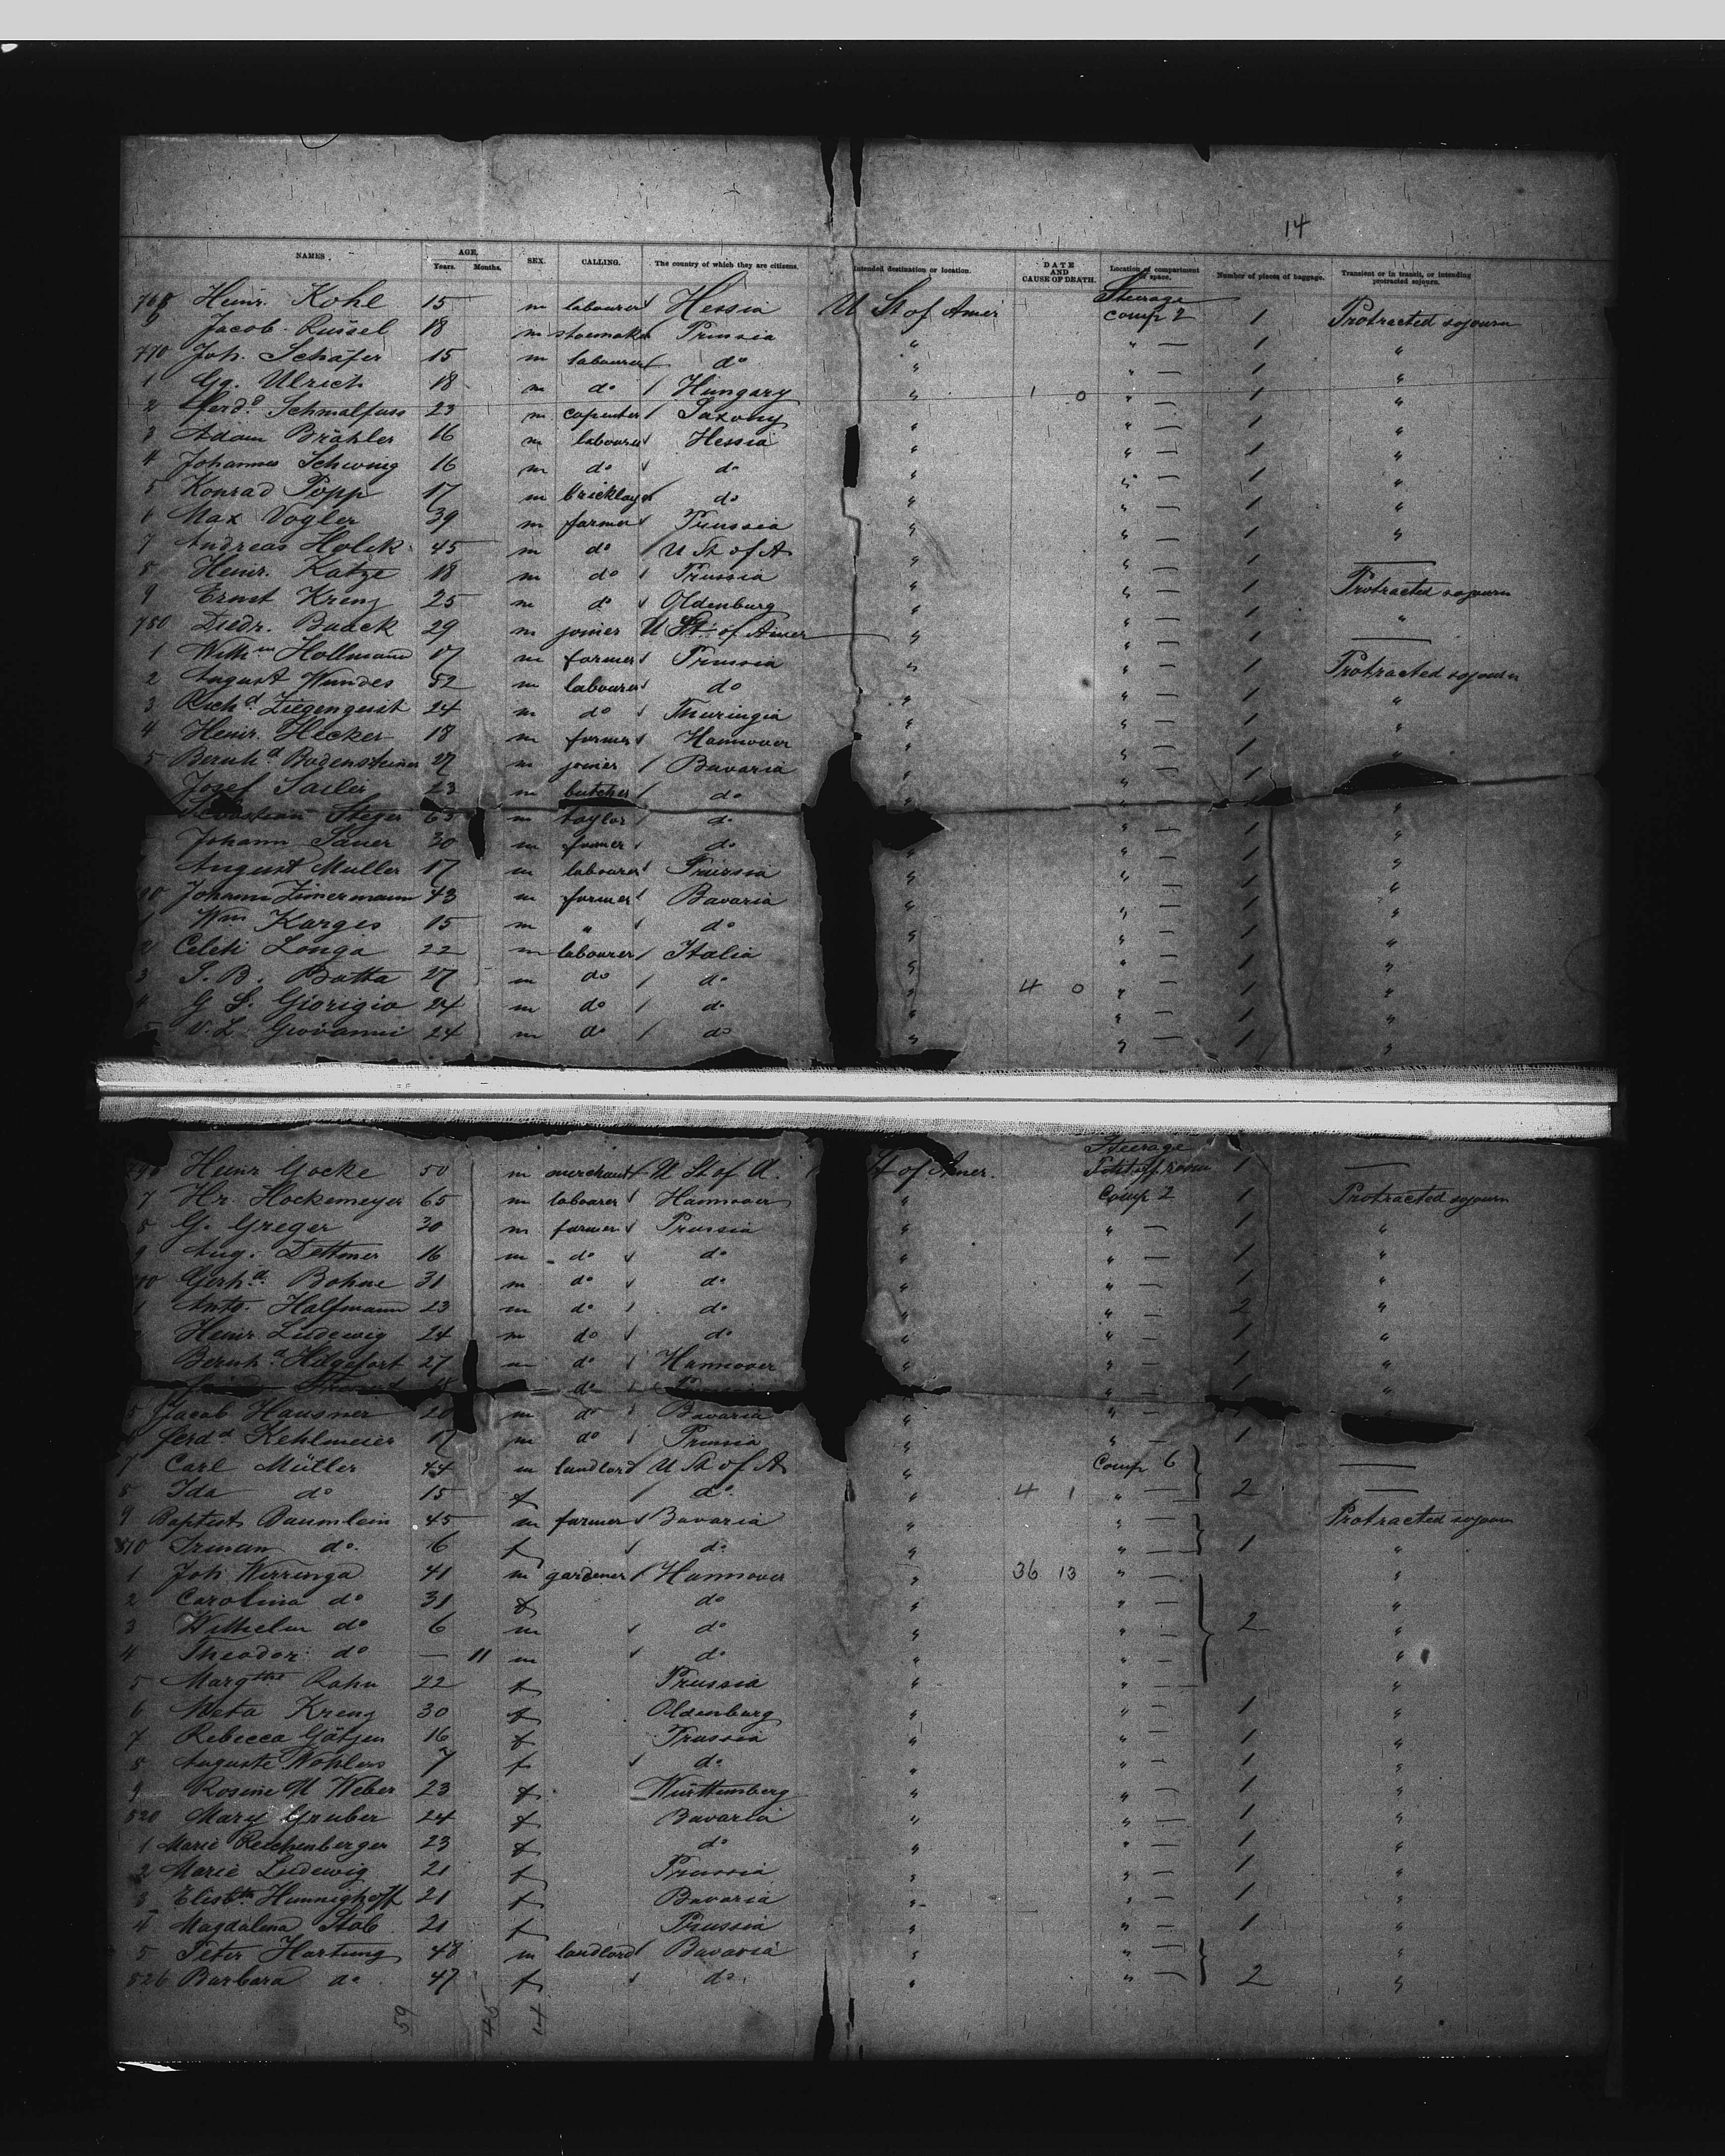 14
NAMES. AGE. Years. Months. SEX. CALLING. The country of which they are citizens. Intended destination or location. DATE AND CAUSE OF DEATH. Location of compartment of space. Number of pieces of baggage. Transient or in transit, or intending protracted sojourn.
768 Heinr. Kohl 15 m labourer Hessia U St of Amer Steerage comp 2 1 Protracted sojourn
9 Jacob Russel 18 m shoemaker Prussia " " — 1 "
770 Joh. Schäfer 15 m labourer do " " — 1 "
1 Gg. Ulrich 18 m do Hungary " 1 0 " — 1 "
2 Ferdd Schmalfuss 23 m capenter Saxony " " — 1 "
3 Adam Brähler 16 m labourer Hessia " " — 1 "
4 Johannes Schwing 16 m do do " " — 1 "
5 Konrad Popp 17 m bricklayer do " " — 1 "
6 Max Vogler 39 m farmer Prussia " " — 1 "
7 Andreas Holik 45 m do U St of A " " — 1 —
8 Heinr. Katze 18 m do Prussia " " — 1 Protracted sojourn
9 Ernst Kreng 25 m do Oldenburg " " — 1 "
780 Diedr. Baack 29 m joiner U St. of Amer " " — 1 —
1 Wilhm Hollmann 17 m farmer Prussia " " — 1 Protracted sojourn
2 August Wundes 52 m labourer do " " — 1 "
3 Richd Ziegengeist 24 m do Thuringia " " — 1 "
4 Heinr. Hecker 18 m farmer Hannover " " — 1 "
5 Bernhd Bodensteiner 27 m joiner Bavaria " " — 1
Josef Sailer 23 m butcher do " " — 1 "
Sebastian Steger 63 m taylor do " — 1 "
Johann Sauer 30 m farmer do " " — 1 "
August Muller 17 m labourer Prussia " " — 1 "
90 Johann Zimermann 43 m farmer Bavaria " " — 1 "
1 Wm Karges 15 m " do " " — 1 "
2 Celeti Longa 22 m labourer Italia " " — 1 "
3 S. B. Botta 27 m do do " 4 0 " — 1 "
4 G S. Giorigio 24 m do do " " — 1 "
5 V. L. Giovanni 24 m do do " " — 1 "
796 Heinr Gocke 50 m merchant U St of A. St of Amer. Steerage 1 —
7 Hr. Hockemeyer 65 m labourer Hannover " Comp 2 1 Protracted sojourn
8 G. Greger 30 m farmer Prussia " " — 1 "
9 Aug. Dettmer 16 m do do " " — 1 "
00 Gerhd. Bohne 31 m do do " " — 1 "
1 Anto. Halfmann 23 m do do " " — 2 "
Heinr. Ludewig 24 m do do " " — 1 "
Bernhd Hilgefort 27 m do Hannover " " — 1 "
18 do " — 1 "
5 Jacob Hausner 20 m do Bavaria " " — 1
Ferdd Kehlmeier 17 m do Prussia " " — 1
7 Carl Müller 44 m landlord U St of A " Comp 6 —
8 Ida do 15 f do " 4 1 " — 2 —
9 Baptist Baumlein 45 m farmer Bavaria " " — Protracted sojourn
810 do. 6 f do " " — 1 "
1 Joh. Wirringa 41 m gardener Hannover " 36 13 " — "
2 Carolina do 31 f do " " — "
3 Wilhelm do 6 m do " " — 2 "
4 Theodor do — 11 m do " " — "
5 Margthe Rahn 22 f Prussia " " — "
6 Meta Kreng 30 f Oldenburg " " — 1 "
7 Rebecca Götjen 16 f Prussia " " — 1 "
8 Auguste Wohlers 7 f do " " — 1 "
9 Rosine M Weber 23 f Württemberg " " — 1 "
820 Mary Gruber 24 f Bavaria " " — 1 "
1 Marie Reichenberger 23 f do " " — 1 "
2 Marie Ludewig 21 f Prussia " " — 1 "
3 Elisbth Hunnighoff 21 f Bavaria " " — 1 "
4 Magdalena Stab 21 f Prussia " " — 1 "
5 Peter Hartung 48 m landlord Bavaria " " — "
826 Barbara do 47 f do. " " — 2 "
59 45 14